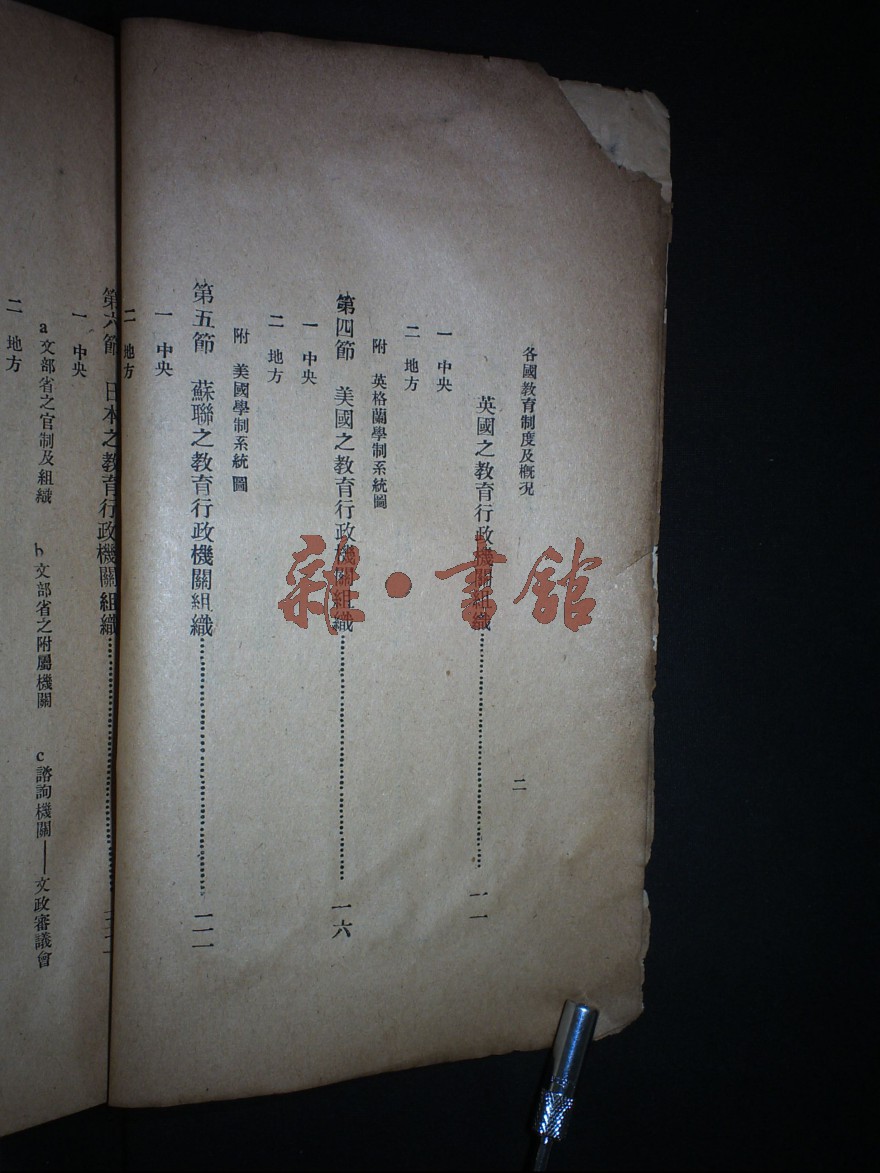 各國教育制度及概況 二
英國之教育行政機關組織 一一
一 中央
二 地方
附 英格蘭學制系統圖
第四節 美國之教育行政機關組織 一六
一 中央
二 地方
附 美國學制系統圖
第五節 蘇聯之教育行政機關組織 二一
一 中央
二 地方
第六節 日本之教育行政機關組織
一 中央
a 文部省之官制及組織 b 文部省之附屬機關 c 諮詢機關——文政審議會
二 地方
雜·書館